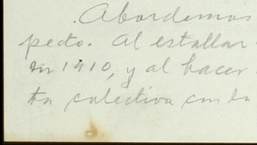 Abordemos
pecto. Al estallar
en 1910, y al hacer
ta colectiva con la